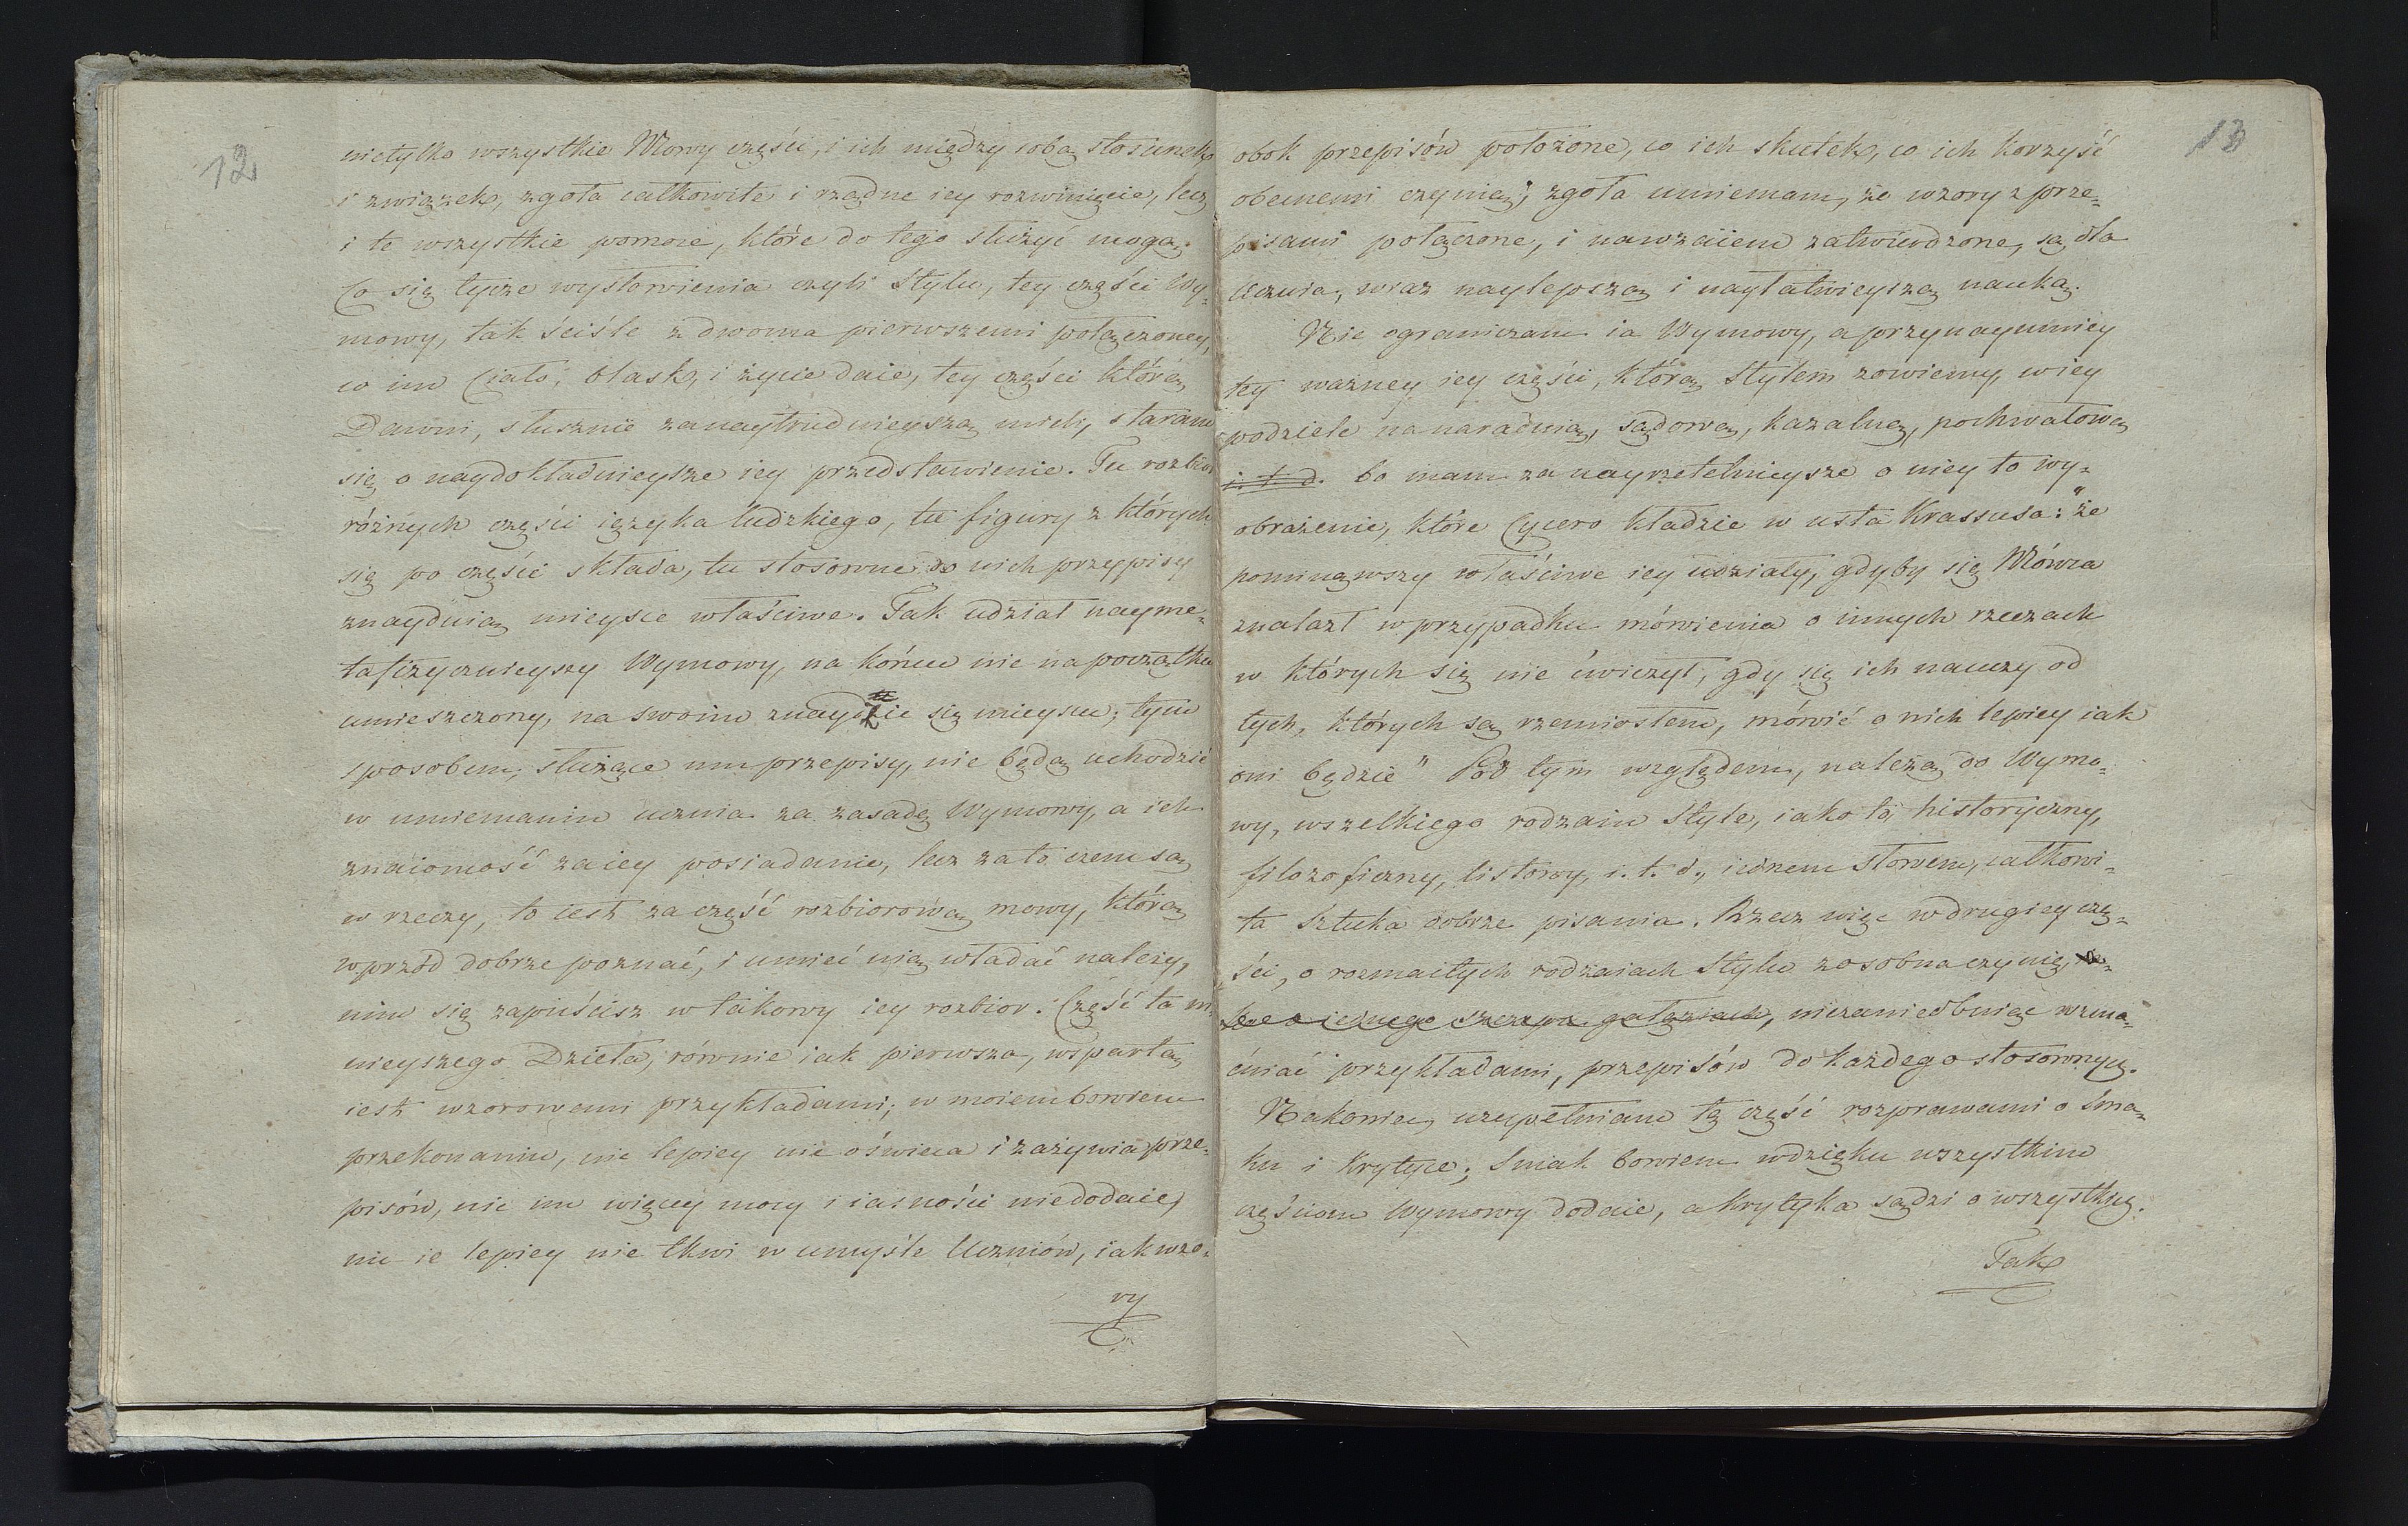 12
nietylko wszystkie Mowy części, i ich między sobą stosunek
i związek, zgoła całkowite i rządne iey rozwinięcie, lecz
i te wszystkie pomoce, które do tego służyć mogą.
Co się tycze wysłowienia czyli Stylu, tey części Wy-
mowy, tak ściśle z dwoma pierwszemi połączoney,
co im Ciało, blask, i życie daie, tey części którą
Dawni, słusznie za naytrudnieyszą mieli, staram
się o naydokładnieysze iey przedstawienie. Tu rozbior
różnych części ięzyka ludzkiego, tu figury z których
się po części składa, tu stosowne do nich przypisy
znayduią mieysce właściwe. Tak udział nayme-
tafizycznieyszy Wymowy, na końcu nie na początku
umieszczony, na swoim znaydzie się mieyscu; tym
sposobem, służące mu przepisy, nie będą uchodzić
w mniemaniu ucznia za zasadę Wymowy, a ich
znaiomość za iey posiadanie, lecz za to czem są
w rzeczy, to iest za część rozbiorową mowy, którą
wprzód dobrze poznać, i umieć nią władać należy,
nim się zapuścisz w takowy iey rozbior. Część ta ni-
nieyszego Dzieła, równie iak pierwsza, wspartą
iest wzorowemi przykładami; w moiem bowiem
przekonaniu, nic lepiey nie oświeca i zażywia prze-
pisów, nic im więcey mocy i iasności niedodaie,
nic ie lepiey nie tkwi w umyśle Uczniów, iak wzo-
ry
13
obok przepisów położone, co ich skutek, co ich korzyść
obecnemi czynią; zgoła mniemam, że wzory z prze-
pisami połączone, i nawzaiem zatwierdzone, są dla
Ucznia, wraz naylepszą i nayłatwieyszą nauką.
Nie ograniczam ia Wymowy, a przynaymniey
tey ważney iey części, którą Stylem zowiemy, w iey
podziele na naradnią, sądową, kazalną, pochwałową
i. t. d. bo mam za nayrzetelnieysze o niey to wy-
obrażenie, które Cycero kładzie w usta Krassusa: "że
pominąwszy właściwe iey udziały, gdyby się Mówca
znalazł w przypadku mówienia o innych rzeczach
w których się nie ćwiczył, gdy się ich nauczy od
tych, których są rzemiosłem, mówić o nich lepiey iak
oni będzie" Pod tym względem, należą do Wymo-
wy, wszelkiego rodzaiu Style, iako to, historyczny,
filozoficzny, listowy, i. t. d., iednem słowem, całkowi-
ta Sztuka dobrze pisania. Rzecz więc w drugiey czę-
ści, o rozmaitych rodzaiach Stylu zosobna czynię,
iednego szczepu gałęziach, niezaniedbuiąc wzma-
cniać przykładami, przepisów do każdego stosownych.
Nakoniec, uzupełniam tę część rozprawami o Sma-
ku i Krytyce; Smak bowiem wdzięku wszystkim
częściom Wymowy dodaie, a krytyka sądzi o wszystkich.
Tak